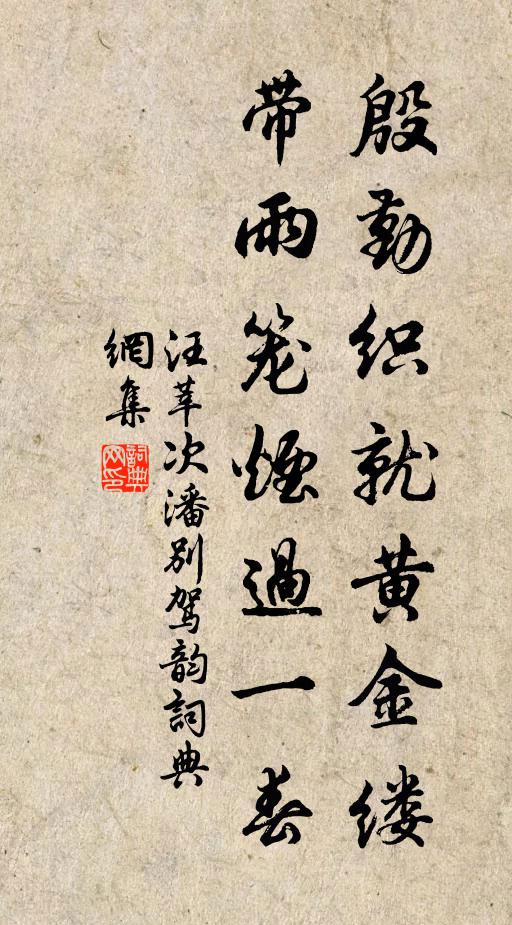 殷勤织就黄金缕
带雨笼烟過一春
汪莘次潘别驾韵詞典
網集
詞典網印